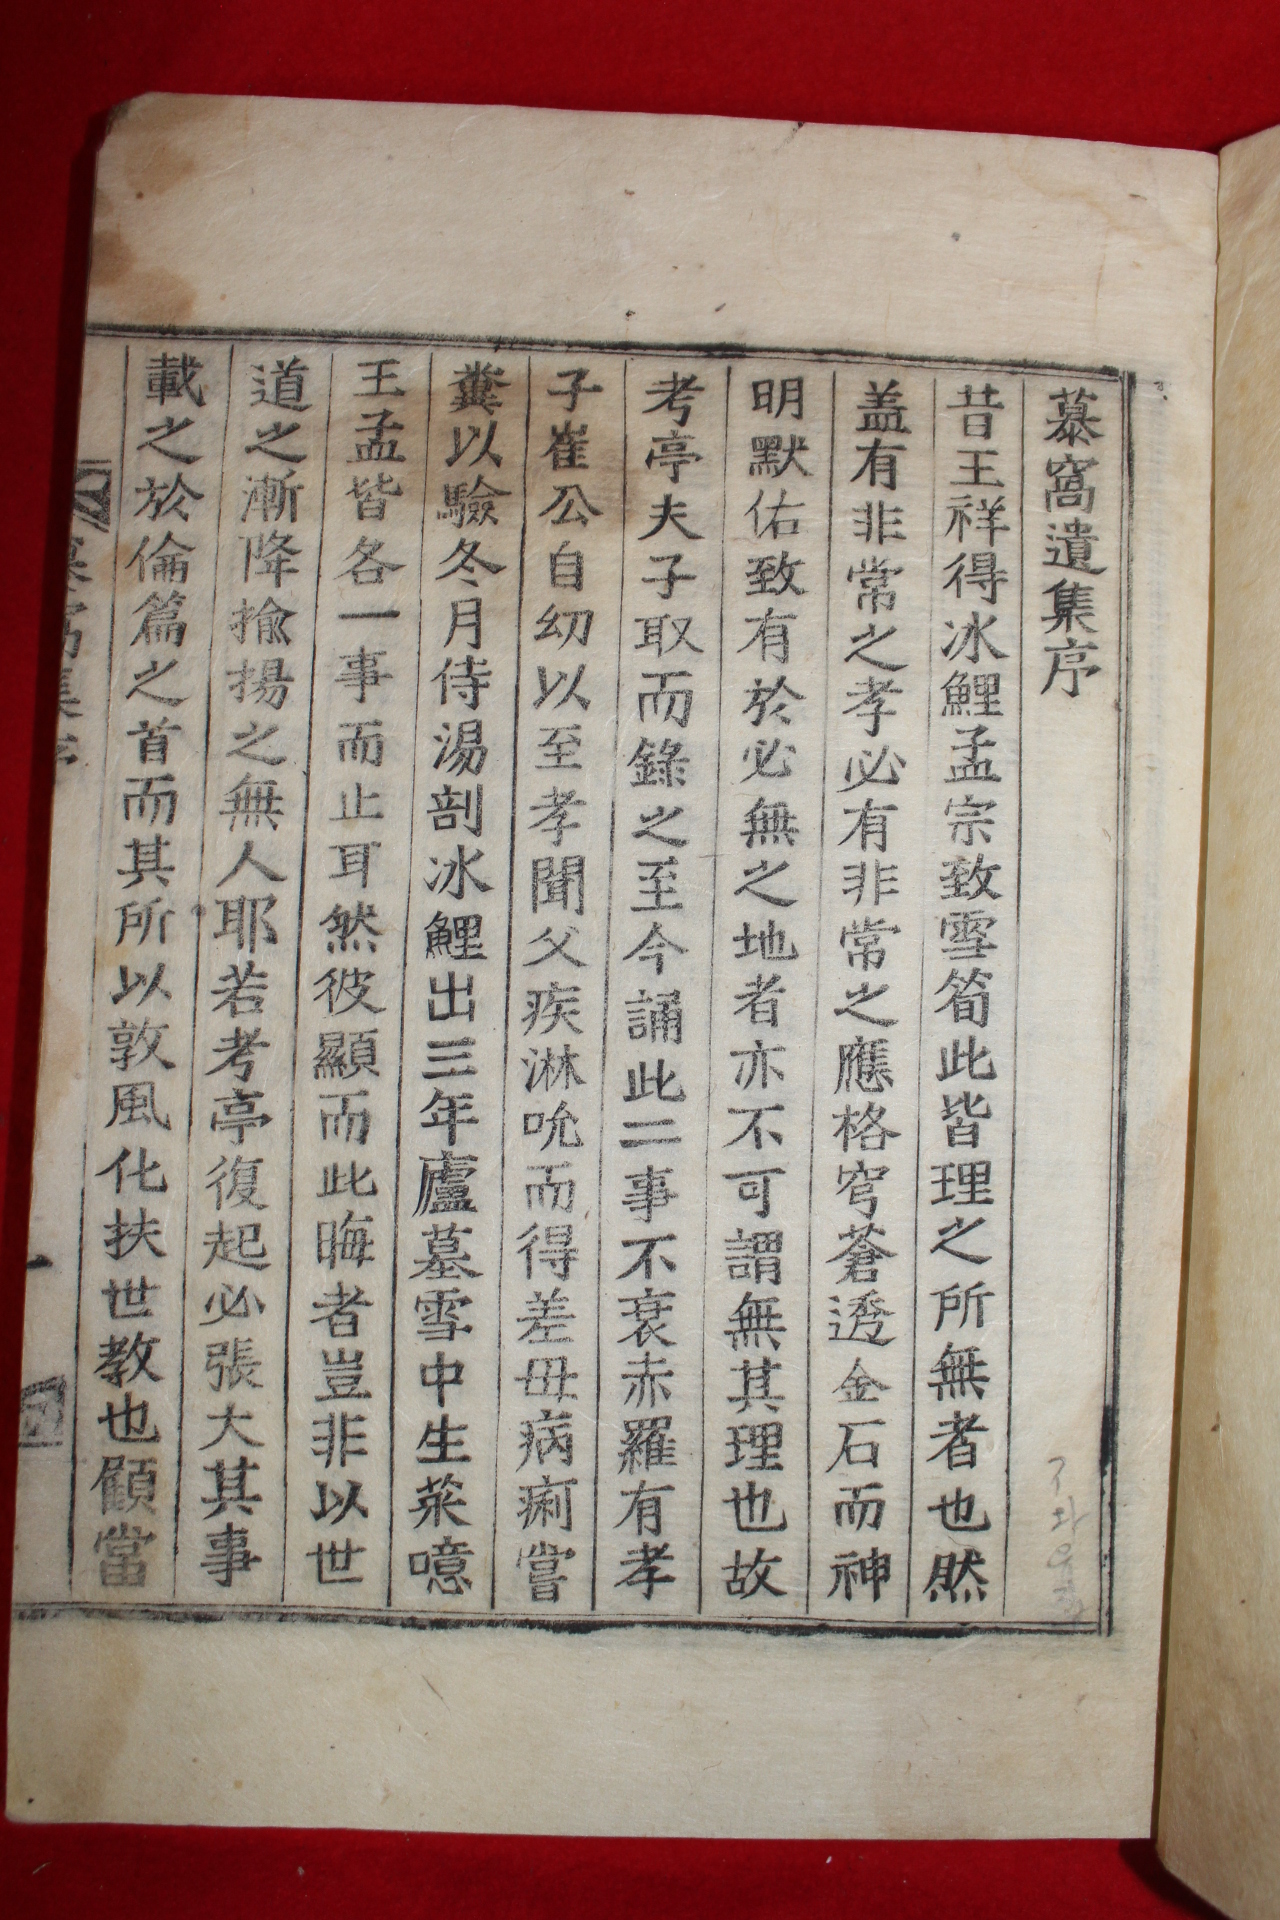 慕窩遺集序
昔王祥得冰鯉孟宗致雪筍此皆理之所無者也然
盖有非常之孝必有非常之應格穹蒼透金石而神
明默佑致有於必無之地者亦不可謂無其理也故
考亭夫子取而錄之至今誦此二事不衰赤羅有孝
子崔公自幼以至孝聞父疾淋吮而得差毋病痢嘗
糞以驗冬月侍湯剖冰鯉出三年廬墓雪中生菜噫
王孟皆各一事而止耳然彼顯而此晦者豈非以世
道之漸降揄揚之無人耶若考亭復起必張大其事
載之於倫篇之首而其所以敦風化扶世教也顧當
慕窩集序
一